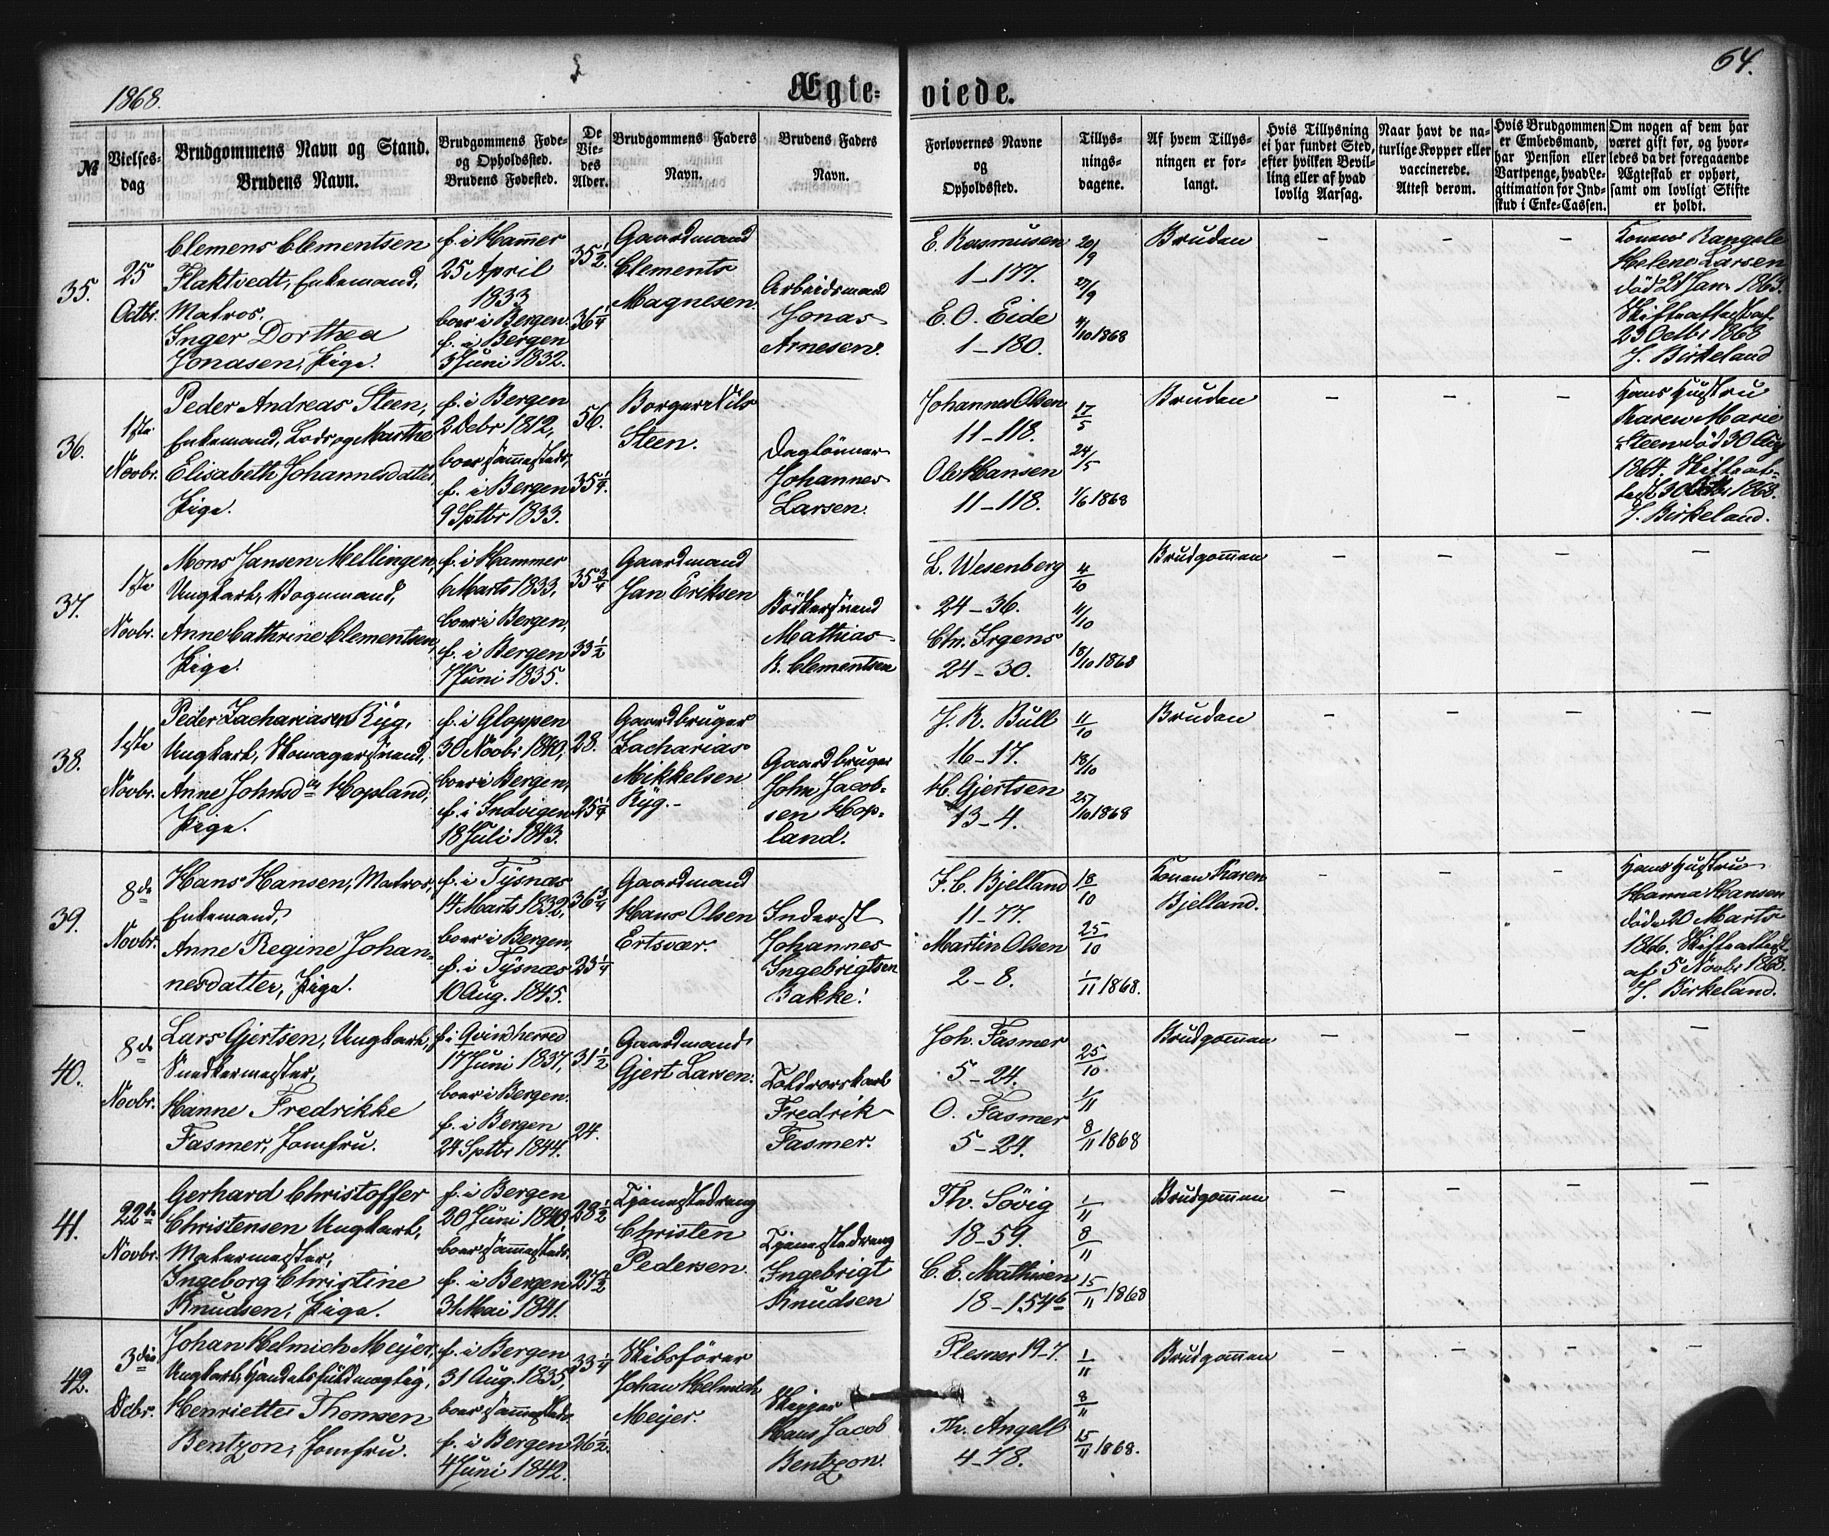 1868.
Ægte-
viede.
64.
№
Vielses-
dag
Brudgommens Navn og Stand.
Brudens Navn.
Brudgommens Føde-
og Opholdssted.
Brudens Fødested.
De
Vie-
des
Alder.
Brudgommens Faders
Navn.
Brudens Faders
Navn.
Forlovernes Navne
og
Opholdssted.
Tillys-
nings-
dagene.
Af hvem Tillys-
ningen er for-
langt.
Hvis Tillysning
ei har fundet Sted,
efter hvilken Bevil-
ling eller af hvad
lovlig Aarsag.
Naar havt de na-
turlige Kopper eller
vaccinerede.
Attest derom.
Hvis Brudgommen
er Embedsmand,
har Pension eller
Vartpenge, hvad Le-
gitimation for Ind-
skud i Enke-Cassen.
Om nogen af dem har
været gift før, og hvor-
ledes da det foregaaende
Ægteskab er ophørt,
samt om lovligt Skifte
er holdt.
35.
25
Octbr.
Clemens Clementsen
Flaktvedt, Enkemand,
Matros.
Inger Dorthea
Jonasen, Pige.
f. i Hammer
25 April
1833
boer i Bergen.
f. i Bergen
5 Juni 1832.
35 1/2
36 1/4
Gaardmand
Clements
Magnesen.
Arbeidsmand
Jonas
Arnesen.
E. Rasmusen
1-177.
E. O. Eide
1-180.
20/9
27/9
4/10 1868
Bruden
-
-
-
Konen Rangele
Helene Larsen
død 21 Jan. 1863.
Skifteattest af
23 Octbr 1868
J. Birkeland
36.
1ste
Novbr.
Peder Andreas Steen,
Enkemand, Lods, og Marthe
Elisabeth Johannesdatter,
Pige.
f. i Bergen
2 Debr 1812,
boer sammesteds,
f. i Bergen
9 Sptbr 1833.
56.
35 1/4.
Borger Nils
Steen.
Daglønner
Johannes
Larsen.
Johannes Olsen
11-118.
Ole Hansen
11-118.
17/5
24/5
1/6 1868
Bruden
-
-
-
Hans Hustru
Karen Marie
Steen død 30 Aug
1864. Skifteat-
test 30 Octbr 1868.
J. Birkeland.
37.
1ste
Novbr.
Mons Jansen Mellingen,
Ungkarl, Vognmand,
Anne Cathrine Clementsen,
Pige.
f. i Hammer
6 Marts 1833,
boer i Bergen,
f. i Bergen
7 Juni 1835.
35 3/4
33 1/2
Gaardmand
Jan Eriksen
Bødkersvend
Mathias
R. Clementsen
L. Wesenberg
24-36.
Chr. Irgens
24-30.
4/10
11/10
18/10 1868
Brudgommen
-
-
-
-
38.
1ste
Novbr.
Peder Zachariasen Ryg,
Ungkarl, Skomagersvend,
Anne Johnsdtr Hopland,
Pige.
f. i Gloppen
30 Novbr 1840,
boer i Bergen,
f. i Indvigen
18 Juli 1843.
28.
25 1/4
Gaardbruger
Zacharias
Mikkelsen
Ryg.
Gaardbruger
John Jacob-
sen Hop-
land.
J. R. Bull
16-17.
H. Gjertsen
13-4.
11/10
18/10
25/10 1868
Bruden
-
-
-
-
39.
8de
Novbr.
Hans Hansen, Matros,
Enkemand,
Anne Regine Johan-
nesdatter, Pige.
f. i Tysnæs
14 Marts 1832,
boer i Bergen,
f. i Tysnæs
10 Aug. 1845.
36 3/4
23 1/4
Gaardmand
Hans Olsen
Ertsvær.
Inderst
Johannes
Ingebrigtsen
Bakke.
F. C. Bjelland
11-77.
Martin Olsen
2-8.
18/10
25/10
1/11 1868.
Konen Karen
Bjelland.
-
-
-
Hans Hustru
Hanna Hansen
døde 20 Marts
1866. Skifteattest
af 5 Novbr 1868.
J. Birkeland.
40.
8de
Novbr.
Lars Gjertsen, Ungkarl,
Snedkermester,
Hanne Fredrikke
Fasmer, Jomfru.
f. i Qvindherred
17 Juni 1837,
boer i Bergen.
f. i Bergen
24 Sptbr 1844.
31 1/2
24.
Gaardmand
Gjert Larsen.
Toldrorskarl
Fredrik
Fasmer.
Joh. Fasmer
5-24.
O. Fasmer
5-24.
25/10.
1/11
8/11 1868
Brudgommen
-
-
-
-
41.
22de
Novbr.
Gerhard Christoffer
Christensen Ungkarl,
Malermester,
Ingeborg Christine
Knudsen, Pige.
f. i Bergen
20 Juni 1840,
boer sammesteds.
f. i Bergen
31 Mai 1841.
28 1/2
27 1/2
Tjenestedreng
Christen
Pedersen
Tjenestedreng
Ingebrigt
Knudsen
Th. Søvig
18-59.
C. E. Mathisen
18-154b
1/11
8/11
15/11 1868
Brudgommen
-
-
-
-
42.
3die
Dcbr.
Johan Helmich Meyer,
Ungkarl, Handelsfuldmægtig,
Henriette Thomsen
Bentzon, Jomfru.
f. i Bergen
31 Aug. 1835,
boer sammesteds.
f. i Bergen
4 Juni 1842.
33 1/4
26 1/2.
Skibsfører
Johan Helmich
Meyer.
Skipper
Hans Jacob
Bentzon.
Plesner 19-7.
Th. Angell
4-78.
1/11
8/11
15/11 1868.
Brudgommen
-
-
-
-